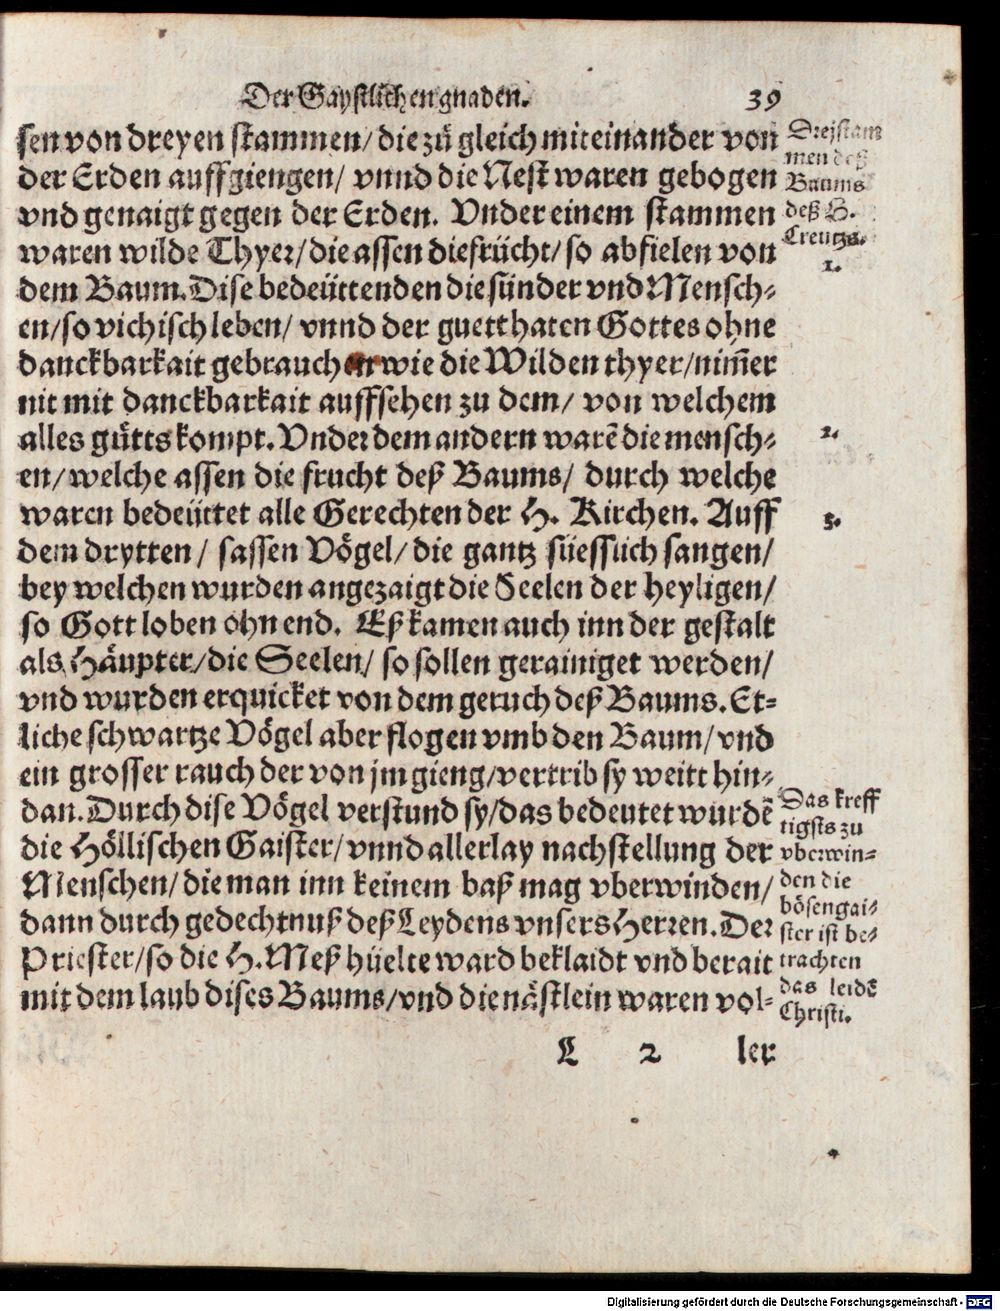 Der Gaystlichen gnaden. 39
sen von dreyen stammen/ die zů gleich miteinander von
der Erden auffgiengen/ vnnd die Nest waren gebogen
vnd genaigt gegen der Erden. Vnder einem stammen
waren wilde Thyer/ die assen die frücht/ so abfielen von
dem Baum. Dise bedeüttenden die sünder vnd Mensch-
en/ so vichisch leben/ vnnd der guetthaten Gottes ohne
danckbarkait gebrauchen wie die Wilden thyer/ nim̃er
nit mit danckbarkait auffsehen zu dem/ von welchem
alles gůtts kompt. Vnder dem andern warẽ die mensch-
en/ welche assen die frucht deß Baums/ durch welche
waren bedeüttet alle Gerechten der H. Kirchen. Auff
dem drytten/ sassen Vögel/ die gantz süesslich sangen/
bey welchen wurden angezaigt die Seelen der heyligen/
so Gott loben ohn end. Eß kamen auch inn der gestalt
als Häupter/ die Seelen/ so sollen gerainiget werden/
vnd wurden erquicket von dem geruch deß Baums. Et-
liche schwartze Vögel aber flogen vmb den Baum/ vnd
ein grosser rauch der von jm gieng/ vertrib sy weitt hin-
dan. Durch dise Vögel verstund sy/ das bedeutet wurdẽ
die Höllischen Gaister/ vnnd allerlay nachstellung der
Menschen/ die man inn keinem baß mag vberwinden/
dann durch gedechtnuß deß Leydens vnsers Herren. Der
Priester/ so die H. Meß hüelte ward beklaidt vnd berait
mit dem laub dises Baums/ vnd die nästlein waren vol-
L 2 ler
Drei stam
men deß
Baums
deß H.
Creutzs.
1.
2.
3.
Das kreff
tigsts zu
vberwin-
den die
bösen gai-
ster ist be-
trachten
das leidẽ
Christi.
Digitalisierung gefördert durch die Deutsche Forschungsgemeinschaft - DFG